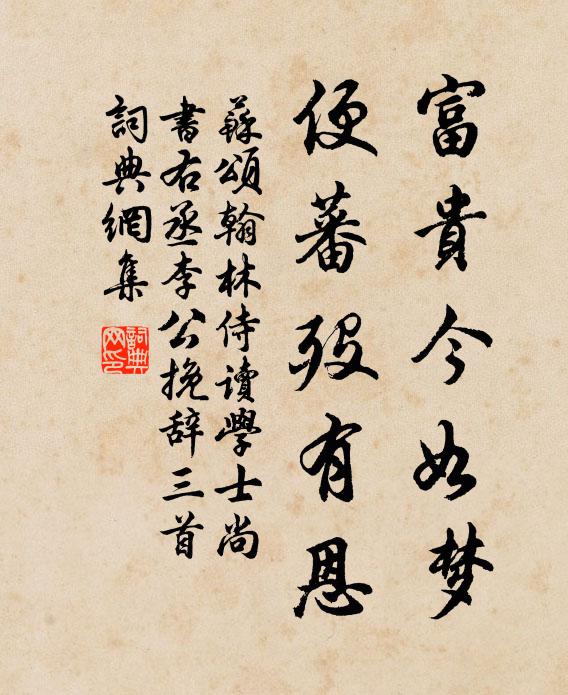 富貴今如梦
便蕃殁有恩
蘇頌翰林侍讀學士尚
書右丞李公挽辞三首
詞典網集
詞典网印